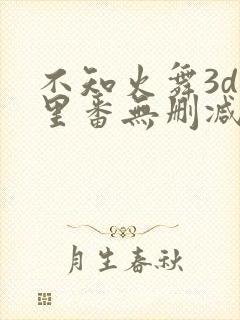 不知火舞3d
里番無删减
月生春秋